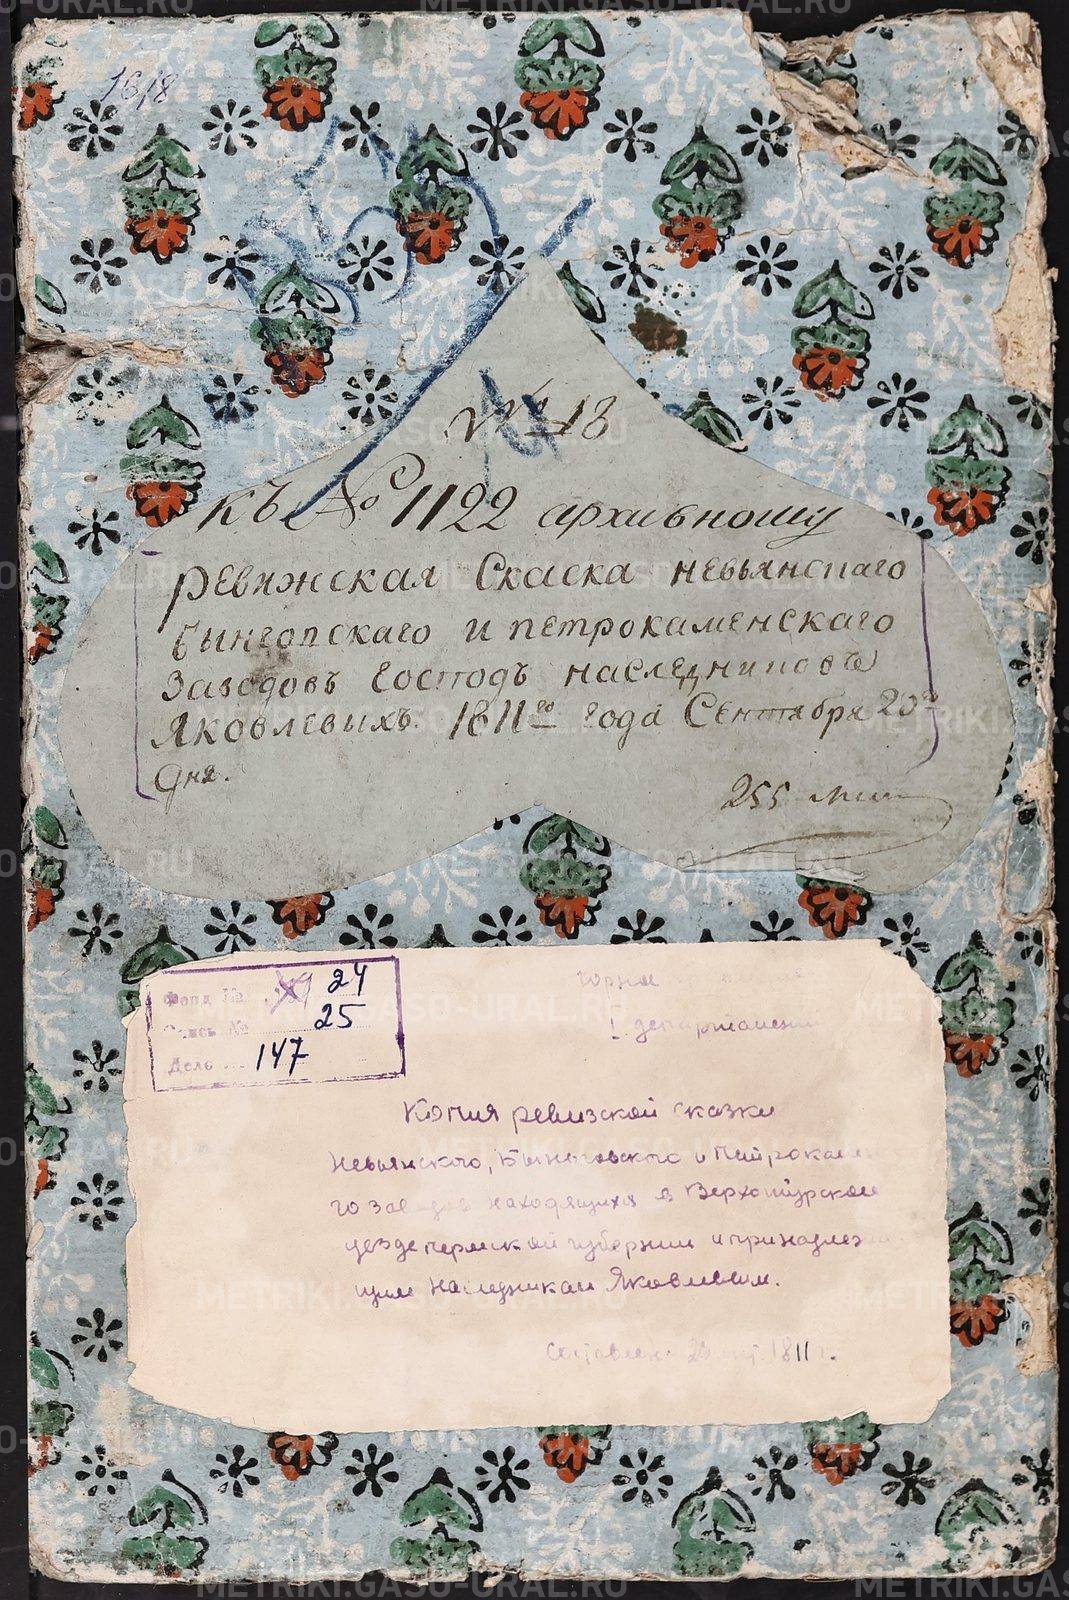 1618
№ 18
Къ № 1122 архивному
ревижская Скаска невьянскаго
бынговскаго и петрокаменскаго
Заводовъ Господъ наследниковъ
Яковлевыхъ. 1811го года Сентября 20го
дня.
255
Фонд № 24
Опись № 25
Дело 147
горное
I департамент
Копия ревизской сказки
невьянского, Быньговского и Петрокамен
го заводов находящихся в Верхотурском
уезде пермской губернии и принадлежа
щим наследникам Яковлевым.
Составлена 20 1811 г.
METRIKI.GASO-URAL.RU